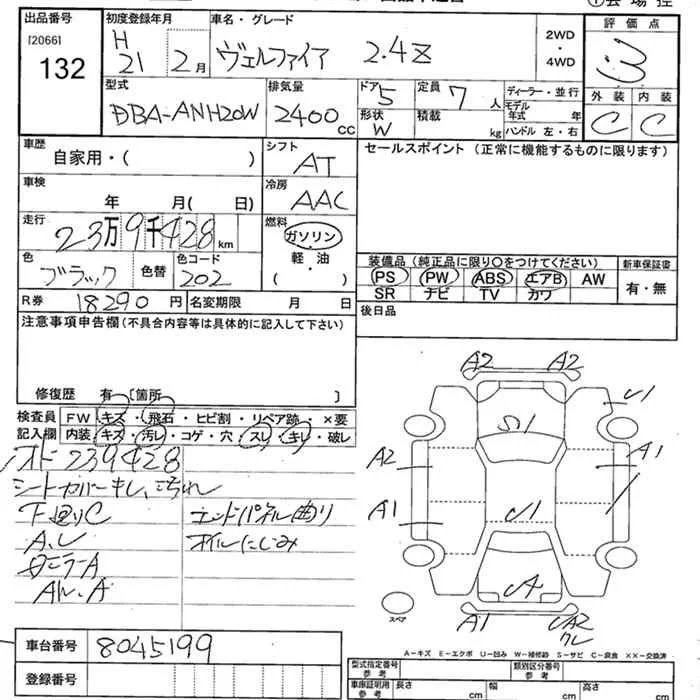 出品番号
[2066]
132
初度登録年月
H
21 2月
車名・グレード
ヴェルファイア 2.4Z
2WD
・
4WD
評価点
3
外装 内装
C C
型式
DBA-ANH20W
排気量
2400 CC
ドア
5
形状
W
定員
7 人
積載
kg
ディーラー・並行
モデル
年式 年
ハンドル 左・右
車歴
自家用・( )
シフト
AT
セールスポイント (正常に機能するものに限ります)
車検
年 月( 日)
冷房
AAC
走行
23万9千428km
燃料
ガソリン
・
軽・油
( )
色
ブラック
色替
色コード
202
装備品 (純正品に限り○をつけてください)
新車保証書
PS PW ABS エアB AW
SR ナビ TV カワ
有・無
R券 18290円 名変期限 月 日
後日品
注意事項申告欄 (不具合内容等は具体的に記入して下さい)
修復歴 有 [箇所 ]
検査員
記入欄
FW キズ・飛石・ヒビ割・リペア跡・×要
内装 キズ・汚レ・コゲ・穴・スレ・キレ・破レ
オド 239428
シートカバーキレ、汚れ
下廻りC
エンドパネル曲り
A.レ
オイルにじみ
AW.A
A2 A2
U1
S1
A2
A1
A1
U1
A1
UA2
スペア
A−キズ E−エクボ U−凹み W−補修跡 S−サビ C−腐食 XX−交換済
車台番号 8045199
登録番号
型式指定番号
参考
類別区分番号
参考
車庫証明用
参考
長さ cm
幅 cm
高さ cm